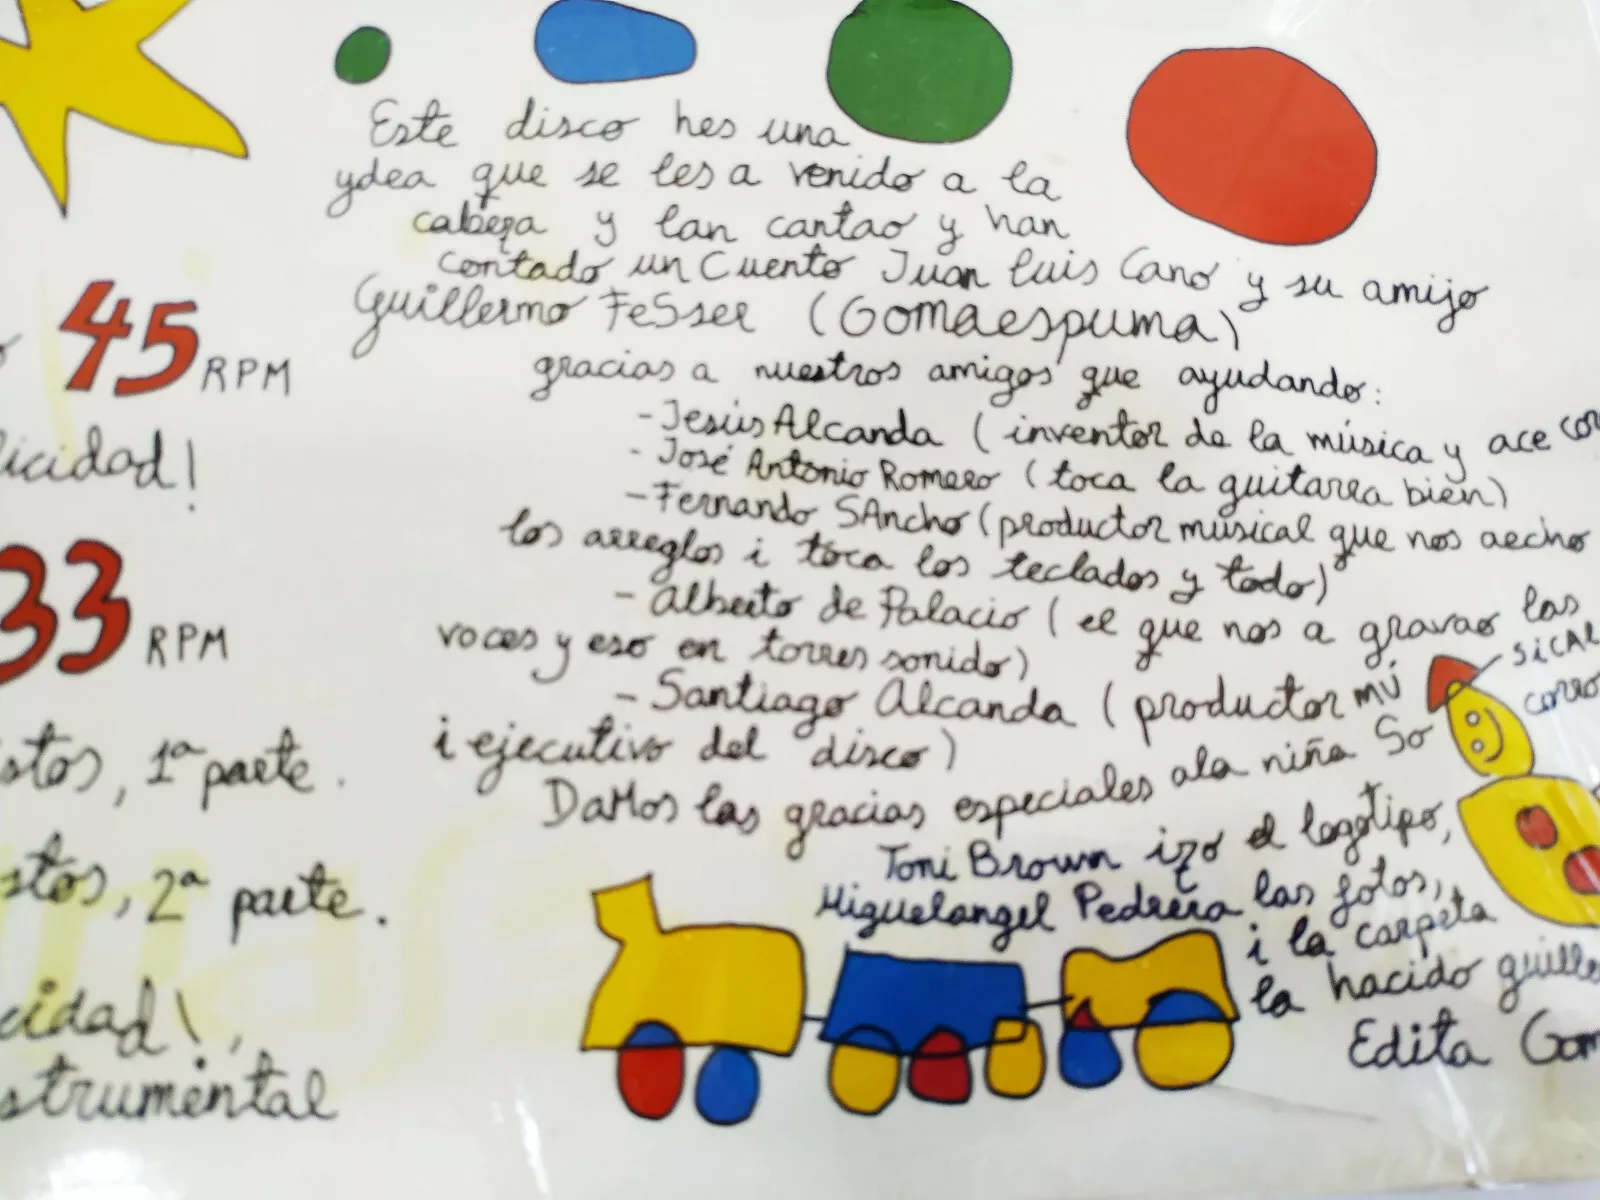 Este disco hes una
ydea que se les a venido a la
cabeza y lan cantao y han
contado un Cuento Juan luis Cano y su amijo
Guillermo FeSser (Gomaespuma)
gracias a nuestros amigos que ayudando:
-Jesús Alcanda (inventor de la música y ace
- José Antonio Romero (toca la guitarra bien)
-Fernando SAncho (productor músical que nos aecho
los arreglos i toca los teclados y todo)
- Alberto de Palacio (el que nos a gravao las
voces y eso en torres sonido)
- Santiago Alcanda (productor mú
SiCAL
i ejecutivo del disco)
DaMos las gracias especiales ala niña So
Toni Brown izo el logotipo,
Miguelangel Pedrera las fotos,
i la carpeta
la hacido guille
Edita Gom
45 RPM
licidad!
33 RPM
stos, 1ª parte.
stos, 2ª parte.
cidad!,
strumental